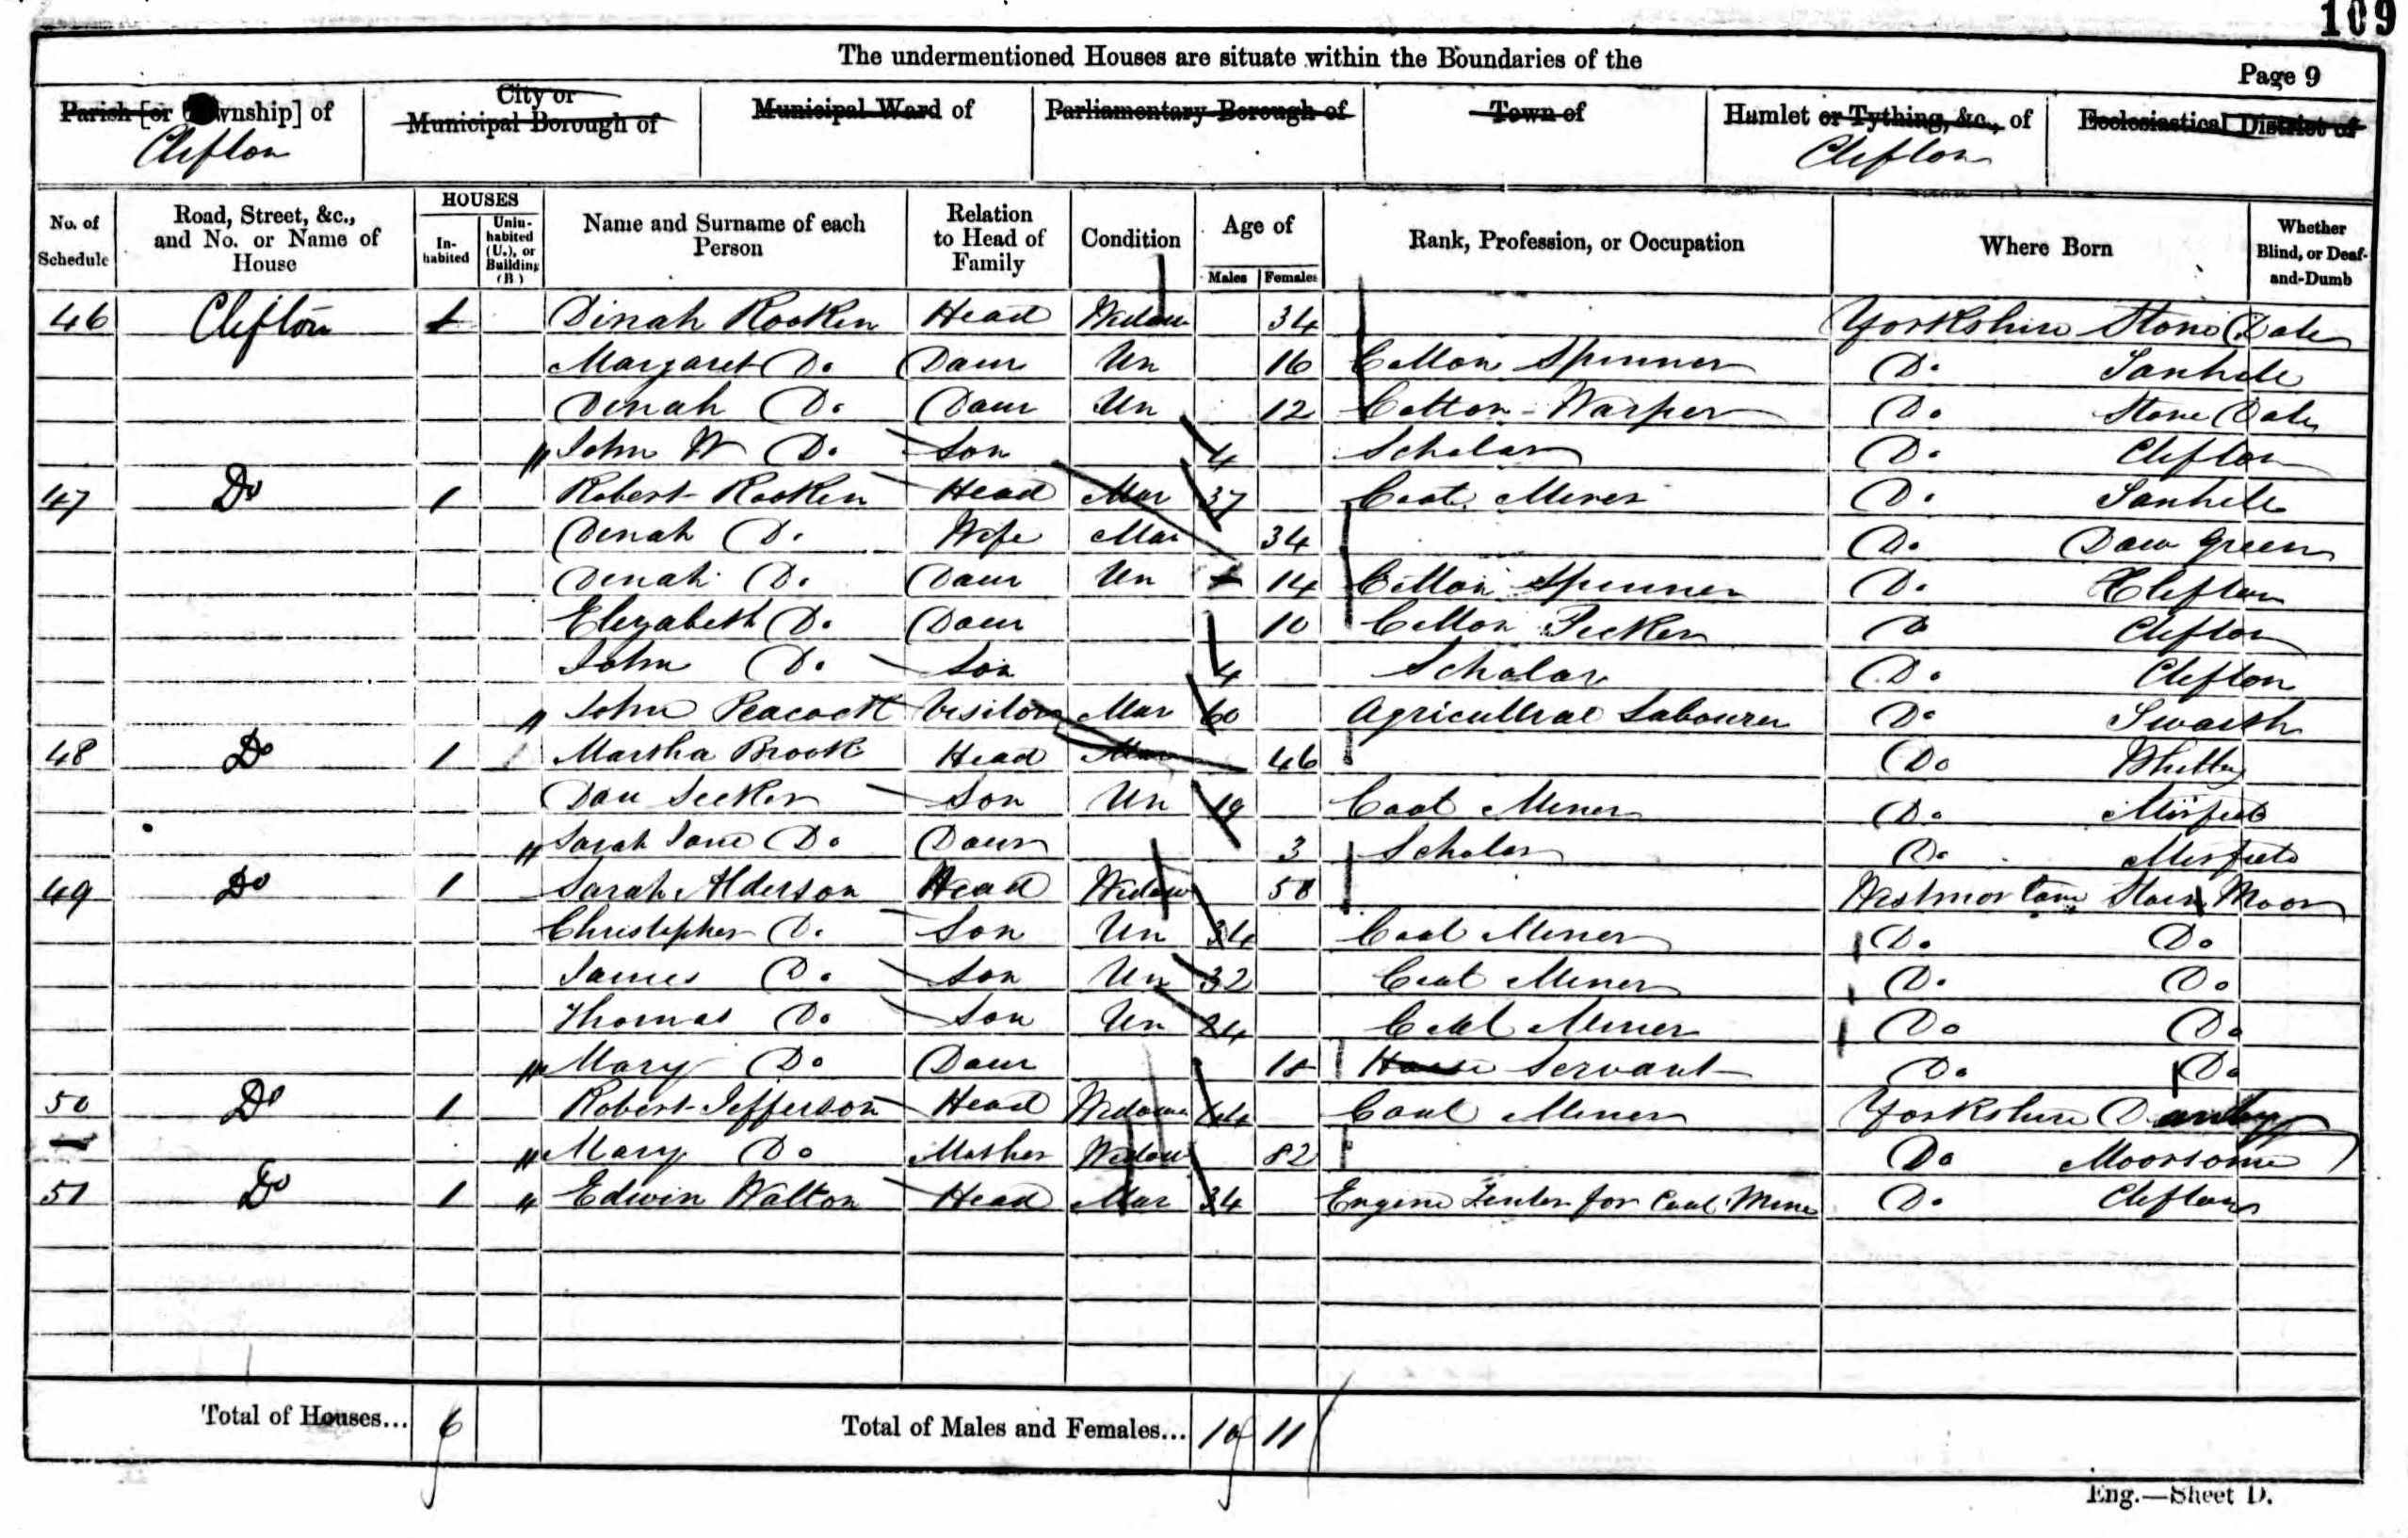 109
The undermentioned Houses are situate within the Boundaries of the
Page 9
Parish [or Township] of
City or Municipal Borough of
Municipal Ward of
Parliamentary Borough of
Town of
Hamlet or Tything, &c., of
Ecclesiastical District of
Clifton
Clifton
No. of Schedule
Road, Street, &c., and No. or Name of House
HOUSES
In-habited
Unin-habited (U.), or Building (B.)
Name and Surname of each Person
Relation to Head of Family
Condition
Age of
Males
Females
Rank, Profession, or Occupation
Where Born
Whether Blind, or Deaf-and-Dumb
46 Clifton 1 Dinah Rooken Head Widow 34 Yorkshire Stone Dale
Margaret Do. Daur Un 16 Cotton Spinner Do.
Dinah Do. Daur Un 12 Cotton Warper Do. Stone Dale
John W Do. Son 4 Scholar Do. Clifton
47 Do 1 Robert Rooken Head Mar 37 Coal Miner Do.
Dinah Do. Wife Mar 34 Do. Daw Green
Dinah Do. Daur Un 14 Cotton Spinner Do. Clifton
Elizabeth Do. Daur 10 Cotton Do Clifton
John Do. Son 4 Scholar Do. Clifton
John Peacock Visitor Mar 60 Agricultral Labourer Do.
48 Do 1 Martha Brook Head Mar 46 Do
Dan Son Un 19 Coal Miner Do. Mirfield
Sarah Jane Do. Daur 3 Scholar Do. Mirfield
49 Do 1 Sarah Alderson Head Widow 58 Westmorland Stain Moor
Christopher Do. Son Un 34 Coal Miner Do. Do
James Do. Son Un 32 Coal Miner Do. Do
Thomas Do Son Un 24 Coal Miner Do Do
Mary Do Daur 18 House Servant Do Do
50 Do 1 Robert Jefferson Head Widower 44 Coal Miner Yorkshire Danby
Mary Do Mother Widow 82 Do Moorsome
51 Do 1 Edwin Walton Head Mar 34 Engine Tenter for Coal Mine Do. Clifton
Total of Houses... 6
Total of Males and Females... 10 11
Eng.—Sheet D.